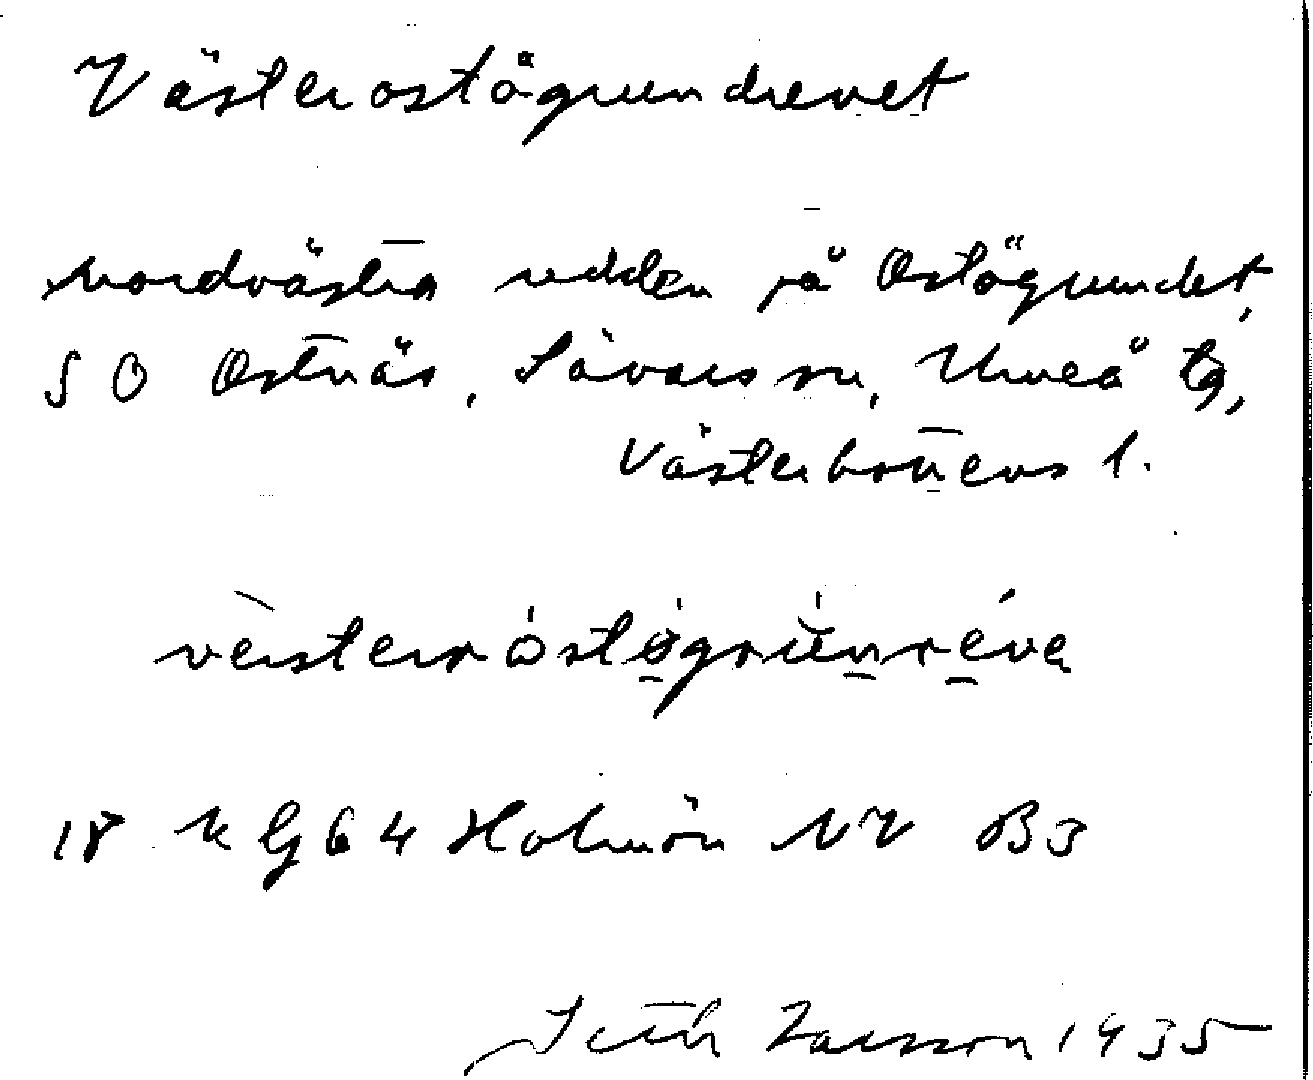 Västerostögrundrevet
nordvästra udden på Ostögrundet,
SO Ostnäs, Sävars sn, Umeå tg,
Västerbottens l.
vèsterr óstögrúnréva
18 K G 64 Holmön NV B3
Seth Larsson 1935